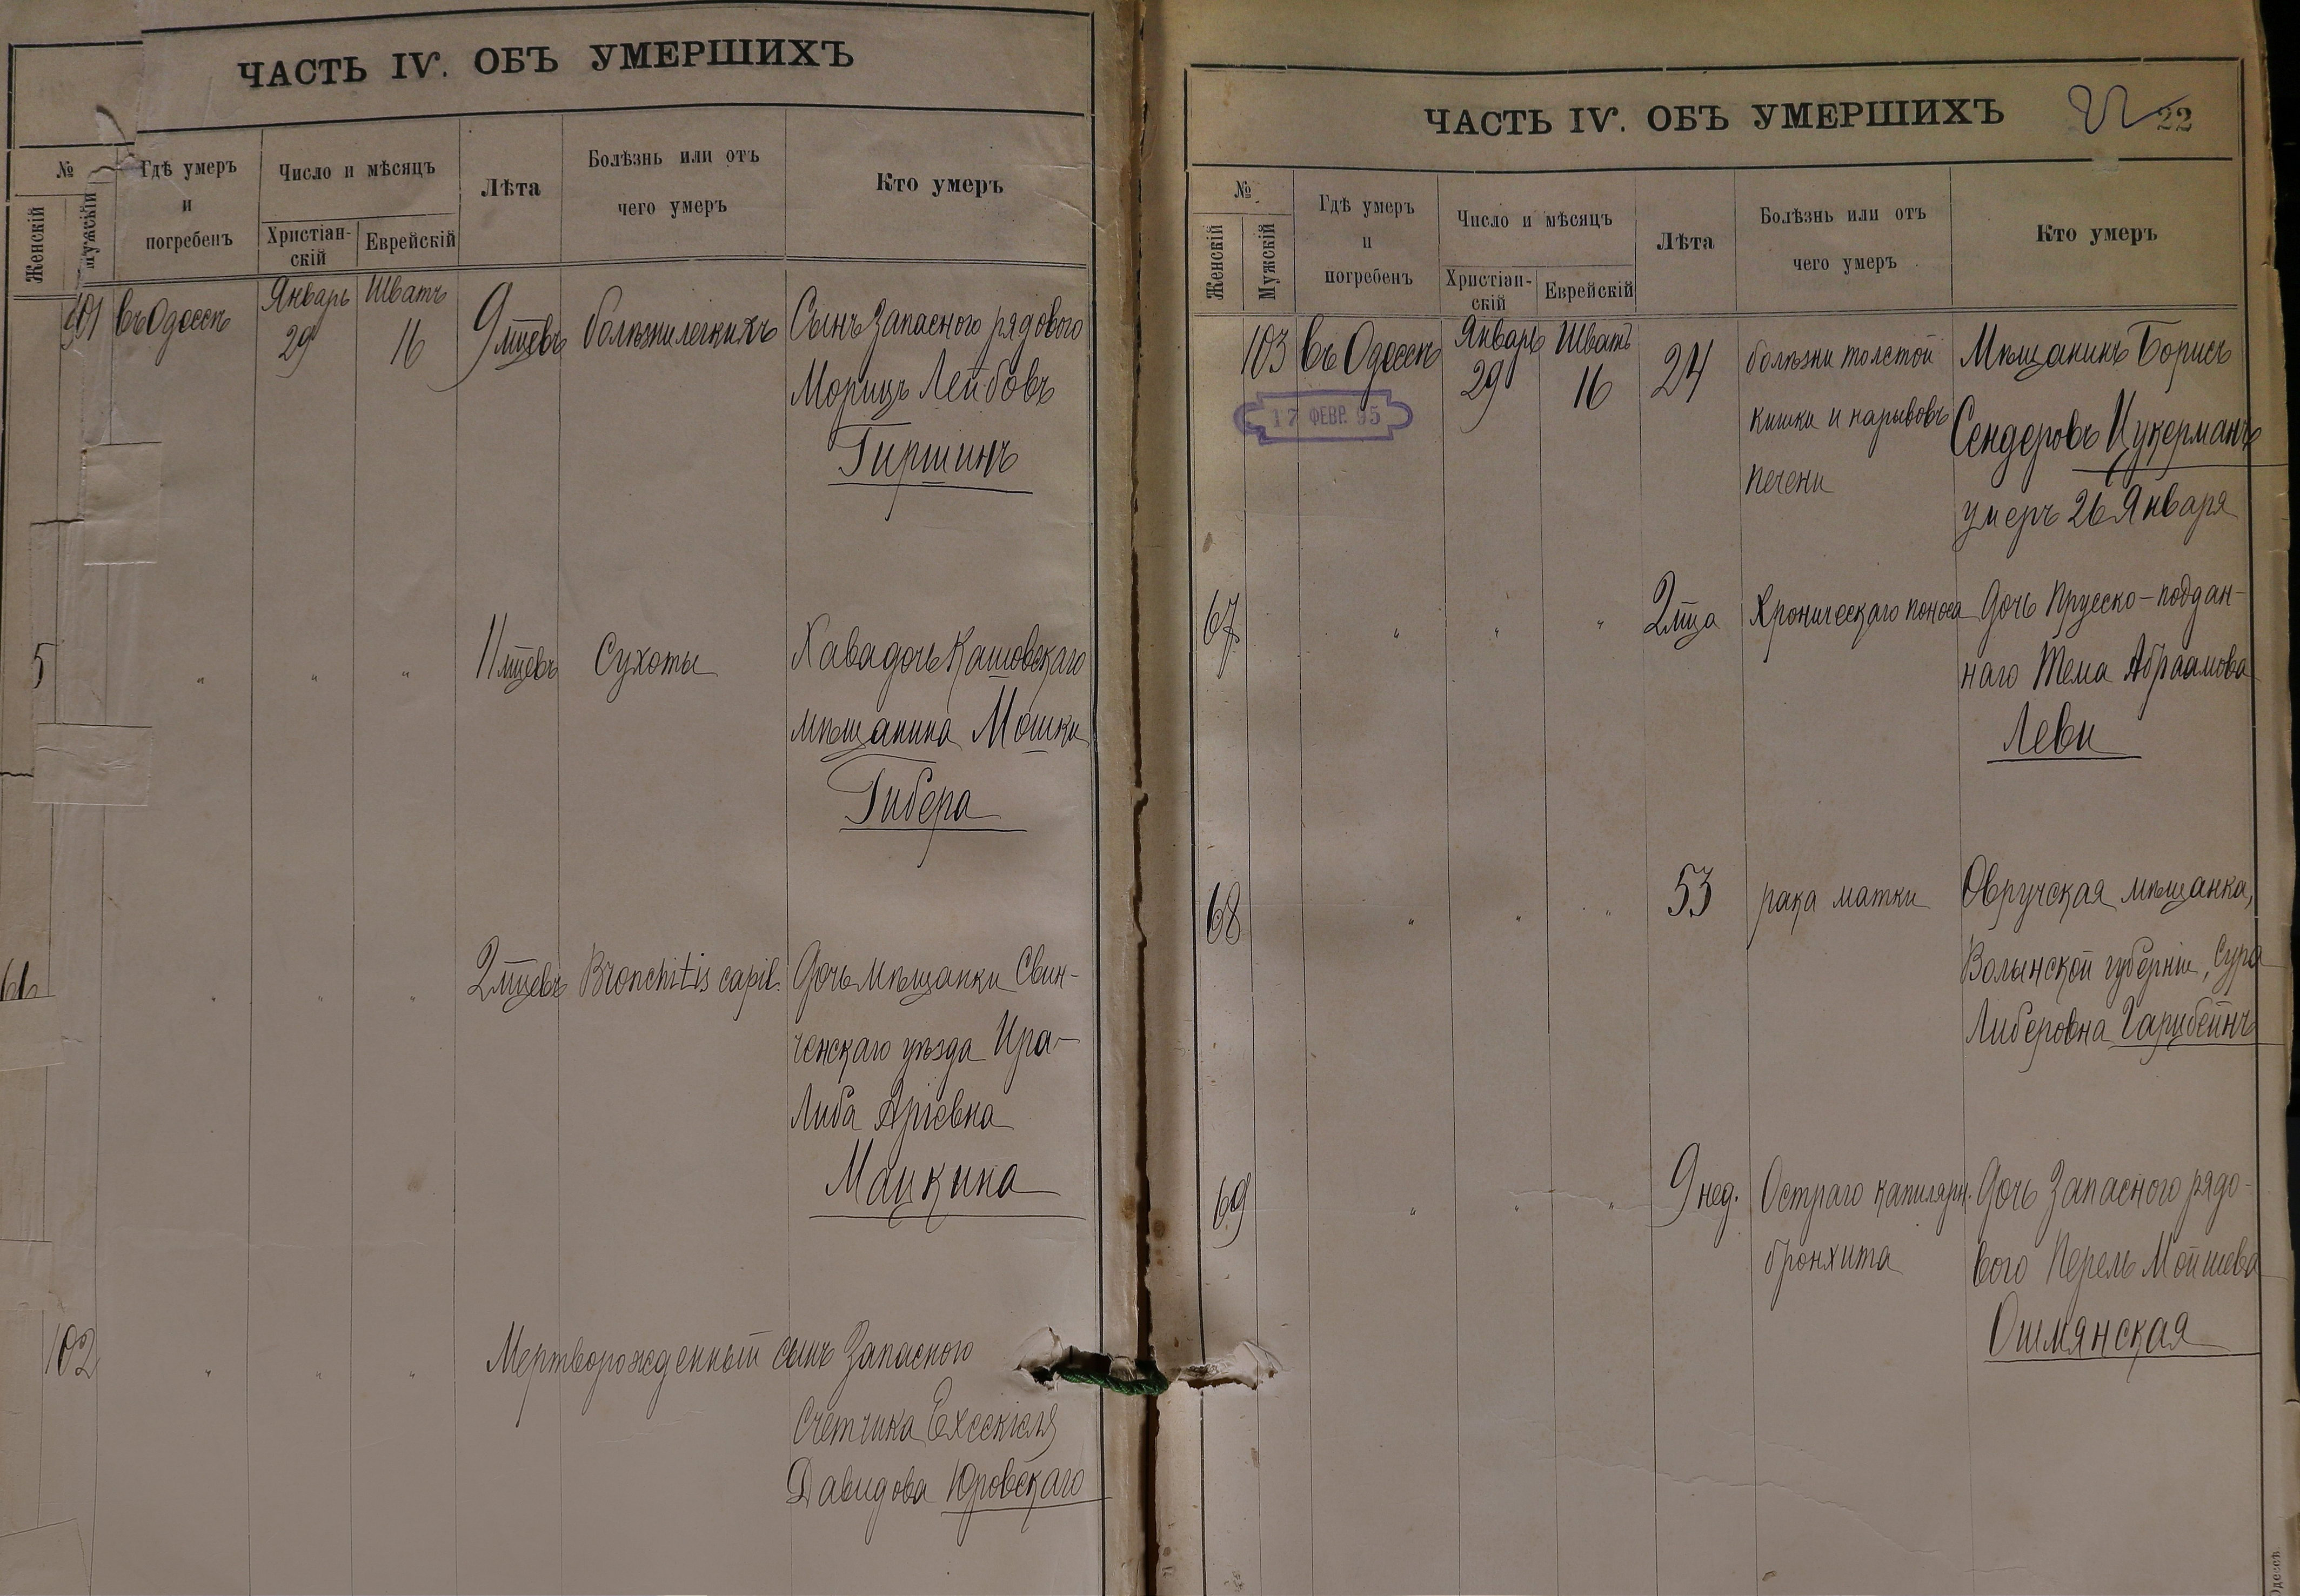 ЧАСТЬ IV. ОБЪ УМЕРШИХЪ
№
Женскій
Мужскій
Гдѣ умеръ
и
погребенъ
Число и мѣсяцъ
Христіан-
скій
Еврейскій
Лѣта
Болѣзнь или отъ
чего умеръ
Кто умеръ
101 въ Одессѣ Январь 29 Шватъ 16 9 мцевъ болѣзни легкихъ Сынъ Запасного рядового
Морицъ Лейбовъ
Гиршинъ
5 " " " 11 мцевъ Сухоты Хава дочь Кашовскаго
мѣщанина Мошки
Гибера
66 " " " 2 мцевъ Bronchitis capil. Дочь мѣщанки Свин-
ченскаго уѣзда Ира-
Либа Аріевна
Мацкина
102 " " " Мертворожденный сынъ Запасного
Счетчика Ехескіеля
Давидова Юровскаго
ЧАСТЬ IV. ОБЪ УМЕРШИХЪ
22 22
№
Женскій
Мужскій
Гдѣ умеръ
и
погребенъ
Число и мѣсяцъ
Христіан-
скій
Еврейскій
Лѣта
Болѣзнь или отъ
чего умеръ
Кто умеръ
103 въ Одессѣ Январь 29 Шватъ 16 24 болѣзни толстой Мѣщанинъ Борисъ
17 ФЕВР. 95
кишки и нарывовъ Сендеровъ Цукерманъ
печени умеръ 26 Января
67 " " " 2 мца Хроническаго поноса Дочь Прусско-поддан-
наго Тема Абраамова
Леви
68 " " " 53 рака матки Овручская мѣщанка,
Волынской губерніи, Сура
Либеровна Гарцбейнъ
69 " " " 9 нед. Остраго капилярн. Дочь Запасного рядо-
бронхита вого Перель Мойшева
Ошмянская